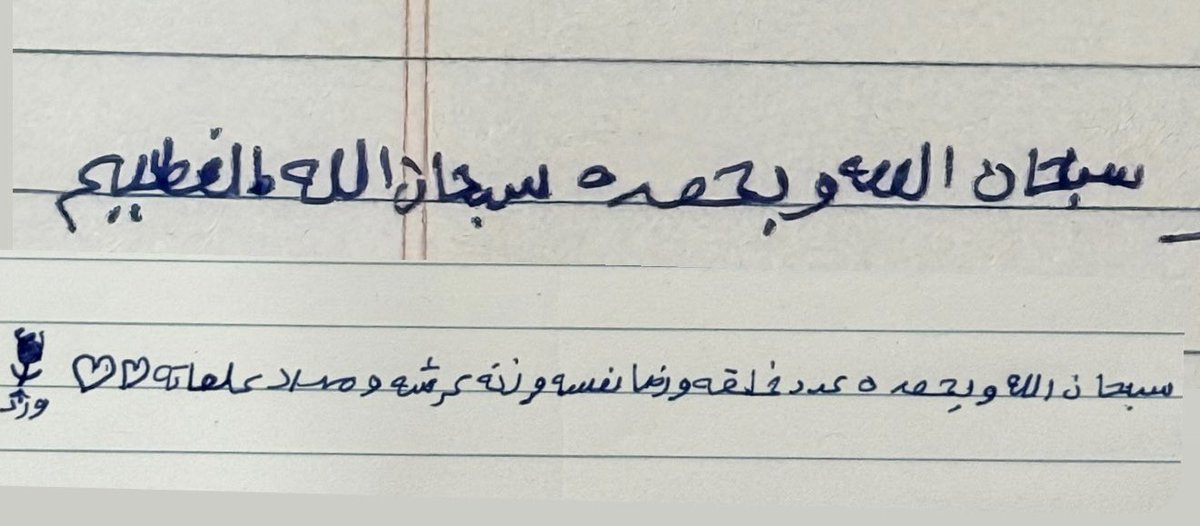 سبحان الله وبحمده سبحان الله العظيم
سبحان الله وبحمده عدد خلقه ورضا نفسه وزنة عرشه ومداد كلماته ♡♡